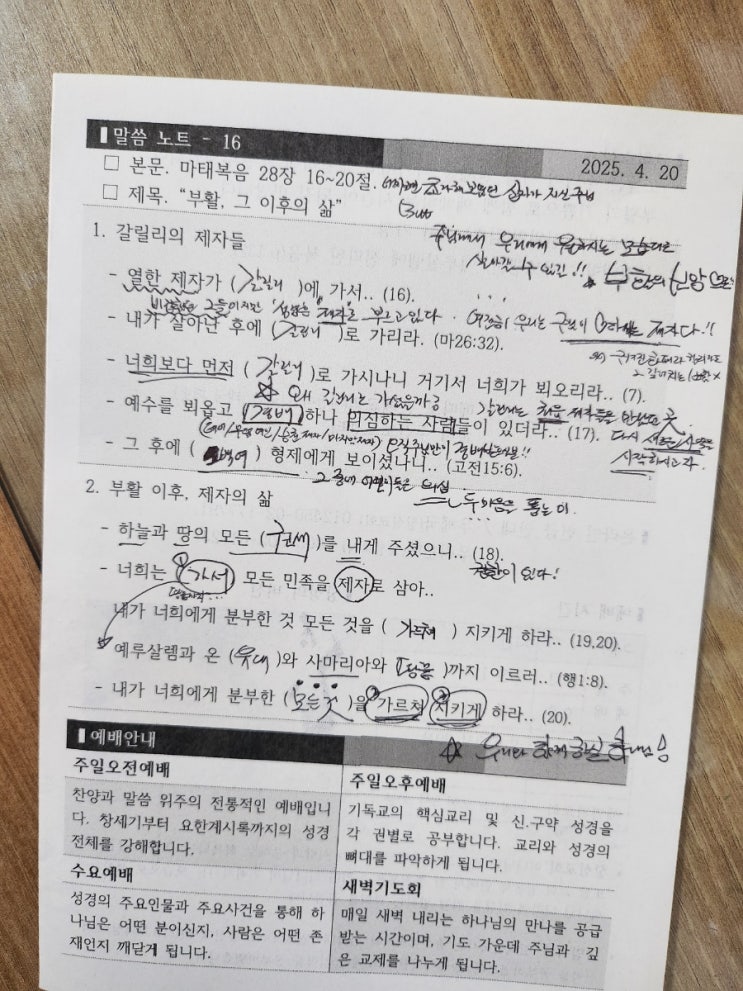 ▌말씀 노트 - 16
2025. 4. 20
□ 본문. 마태복음 28장 16~20절.
□ 제목. "부활, 그 이후의 삶"
우리에게
살아갈 수 있길!! ★ 부활의 신앙으로!
1. 갈릴리의 제자들
- 열한 제자가 (갈릴리)에 가서.. (16).
그들이지만 제자로 부르고 있다.
제자다.!!
- 내가 살아난 후에 (갈릴리)로 가리라. (마26:32).
- 너희보다 먼저 (갈릴리)로 가시나니 거기서 너희가 뵈오리라.. (7).
☆ 왜 갈릴리로 가셨을까?
갈릴리는 처음 제자들을 만났던 곳.
- 예수를 뵈옵고 (경배)하나 의심하는 사람들이 있더라.. (17).
다시 새롭게
시작하시고자.
- 그 후에 (오백여) 형제에게 보이셨나니.. (고전15:6).
그 중에 의심
두 마음을 품는 이.
2. 부활 이후, 제자의 삶
- 하늘과 땅의 모든 (권세)를 내게 주셨으니.. (18).
권한이 있다!
- 너희는 ① (가서) 모든 민족을 제자로 삼아..
내가 너희에게 분부한 것 모든 것을 ( 가르쳐 ) 지키게 하라.. (19,20).
예루살렘과 온 (유대)와 사마리아와 (땅끝)까지 이르러.. (행1:8).
- 내가 너희에게 분부한 (모든 것)을 ② 가르쳐 ③ 지키게 하라.. (20).
☆ 우리와 함께 하실 하나님
▌예배안내
주일오전예배
찬양과 말씀 위주의 전통적인 예배입니
다. 창세기부터 요한계시록까지의 성경
전체를 강해합니다.
주일오후예배
기독교의 핵심교리 및 신.구약 성경을
각 권별로 공부합니다. 교리와 성경의
뼈대를 파악하게 됩니다.
수요예배
성경의 주요인물과 주요사건을 통해 하
나님은 어떤 분이신지, 사람은 어떤 존
재인지 깨닫게 됩니다.
새벽기도회
매일 새벽 내리는 하나님의 만나를 공급
받는 시간이며, 기도 가운데 주님과 깊
은 교제를 나누게 됩니다.